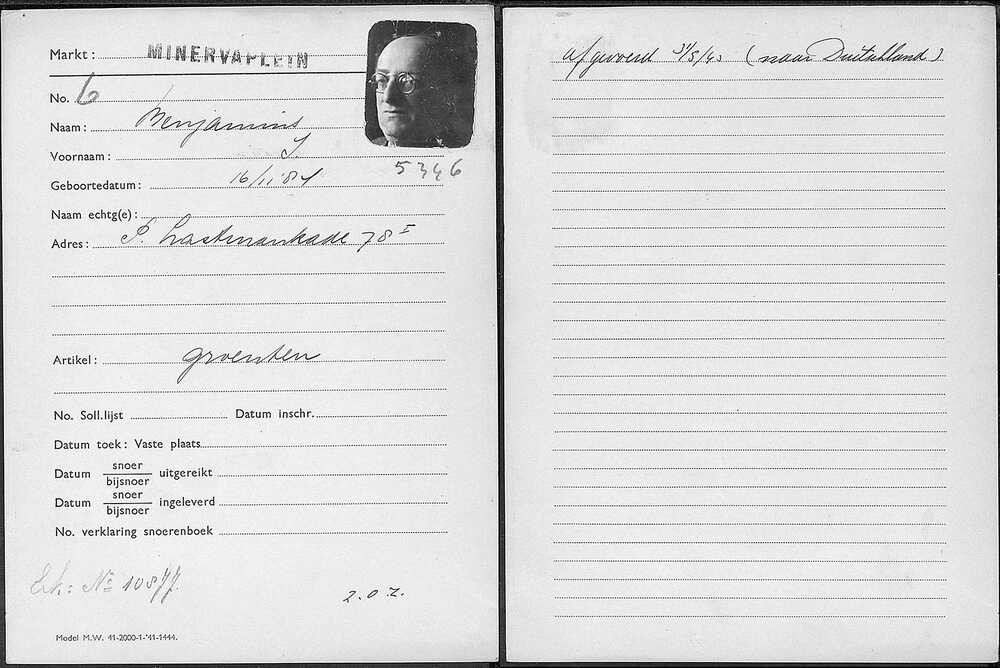 Markt: MINERVAPLEIN
No. 6
Naam: Benjamins
Voornaam: S
5346
Geboortedatum: 16/11 '84
Naam echtg(e):
Adres: P. Lastmankade 78 I
Artikel: groenten
No. Soll.lijst Datum inschr.
Datum toek: Vaste plaats
Datum snoer/bijsnoer uitgereikt
Datum snoer/bijsnoer ingeleverd
No. verklaring snoerenboek
Erk: No 10577
2.0.Z.
Model M.W. 41-2000-1-'41-1444.
afgevoerd 31/5/43 (naar Duitschland)